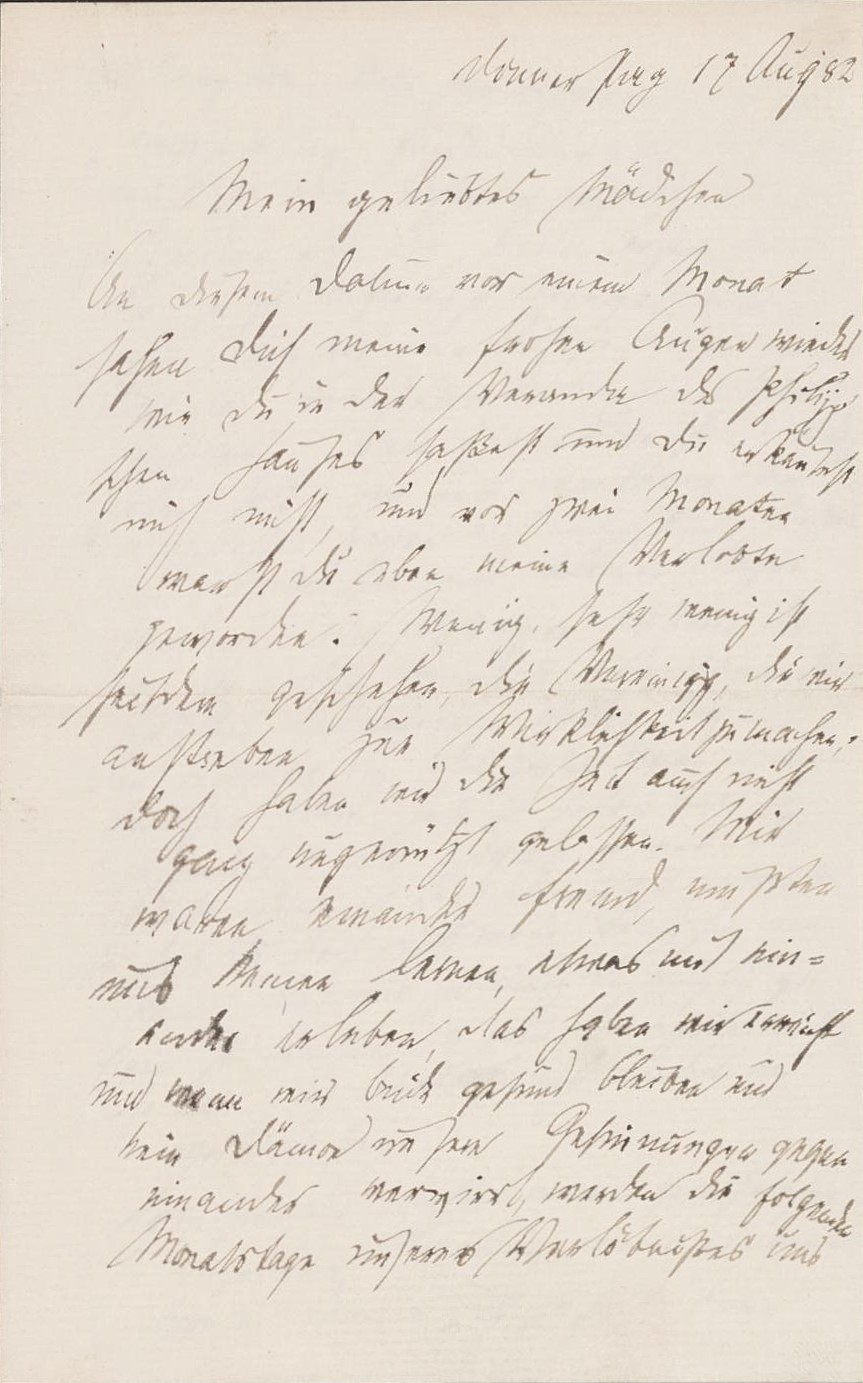 Donnerstag 17 Aug 82
Mein geliebtes Mädchen
An diesem Datum vor einem Monat
sahen Dich meine frohen Augen wieder
wie Du in der Veranda des Philipp
schen Hauses saßest und Du erkanntest
mich nicht, und vor zwei Monaten
warst Du eben meine Verlobte
geworden. Wenig, sehr wenig ist
seitdem geschehen, die Vereinigg, die wir
anstreben zur Wirklichkeit zu machen,
doch haben wir die Zeit auch nicht
ganz ungenützt gelassen. Wir
waren einander fremd, mußten
uns kennen lernen, etwas mit ein=
ander erleben, das haben wir erreicht
und wenn wir beide gesund bleiben und
kein Dämon unsere Gesinnungen gegen
einander verwirrt, werden die folgenden
Monatstage unseres Verlöbnißes uns